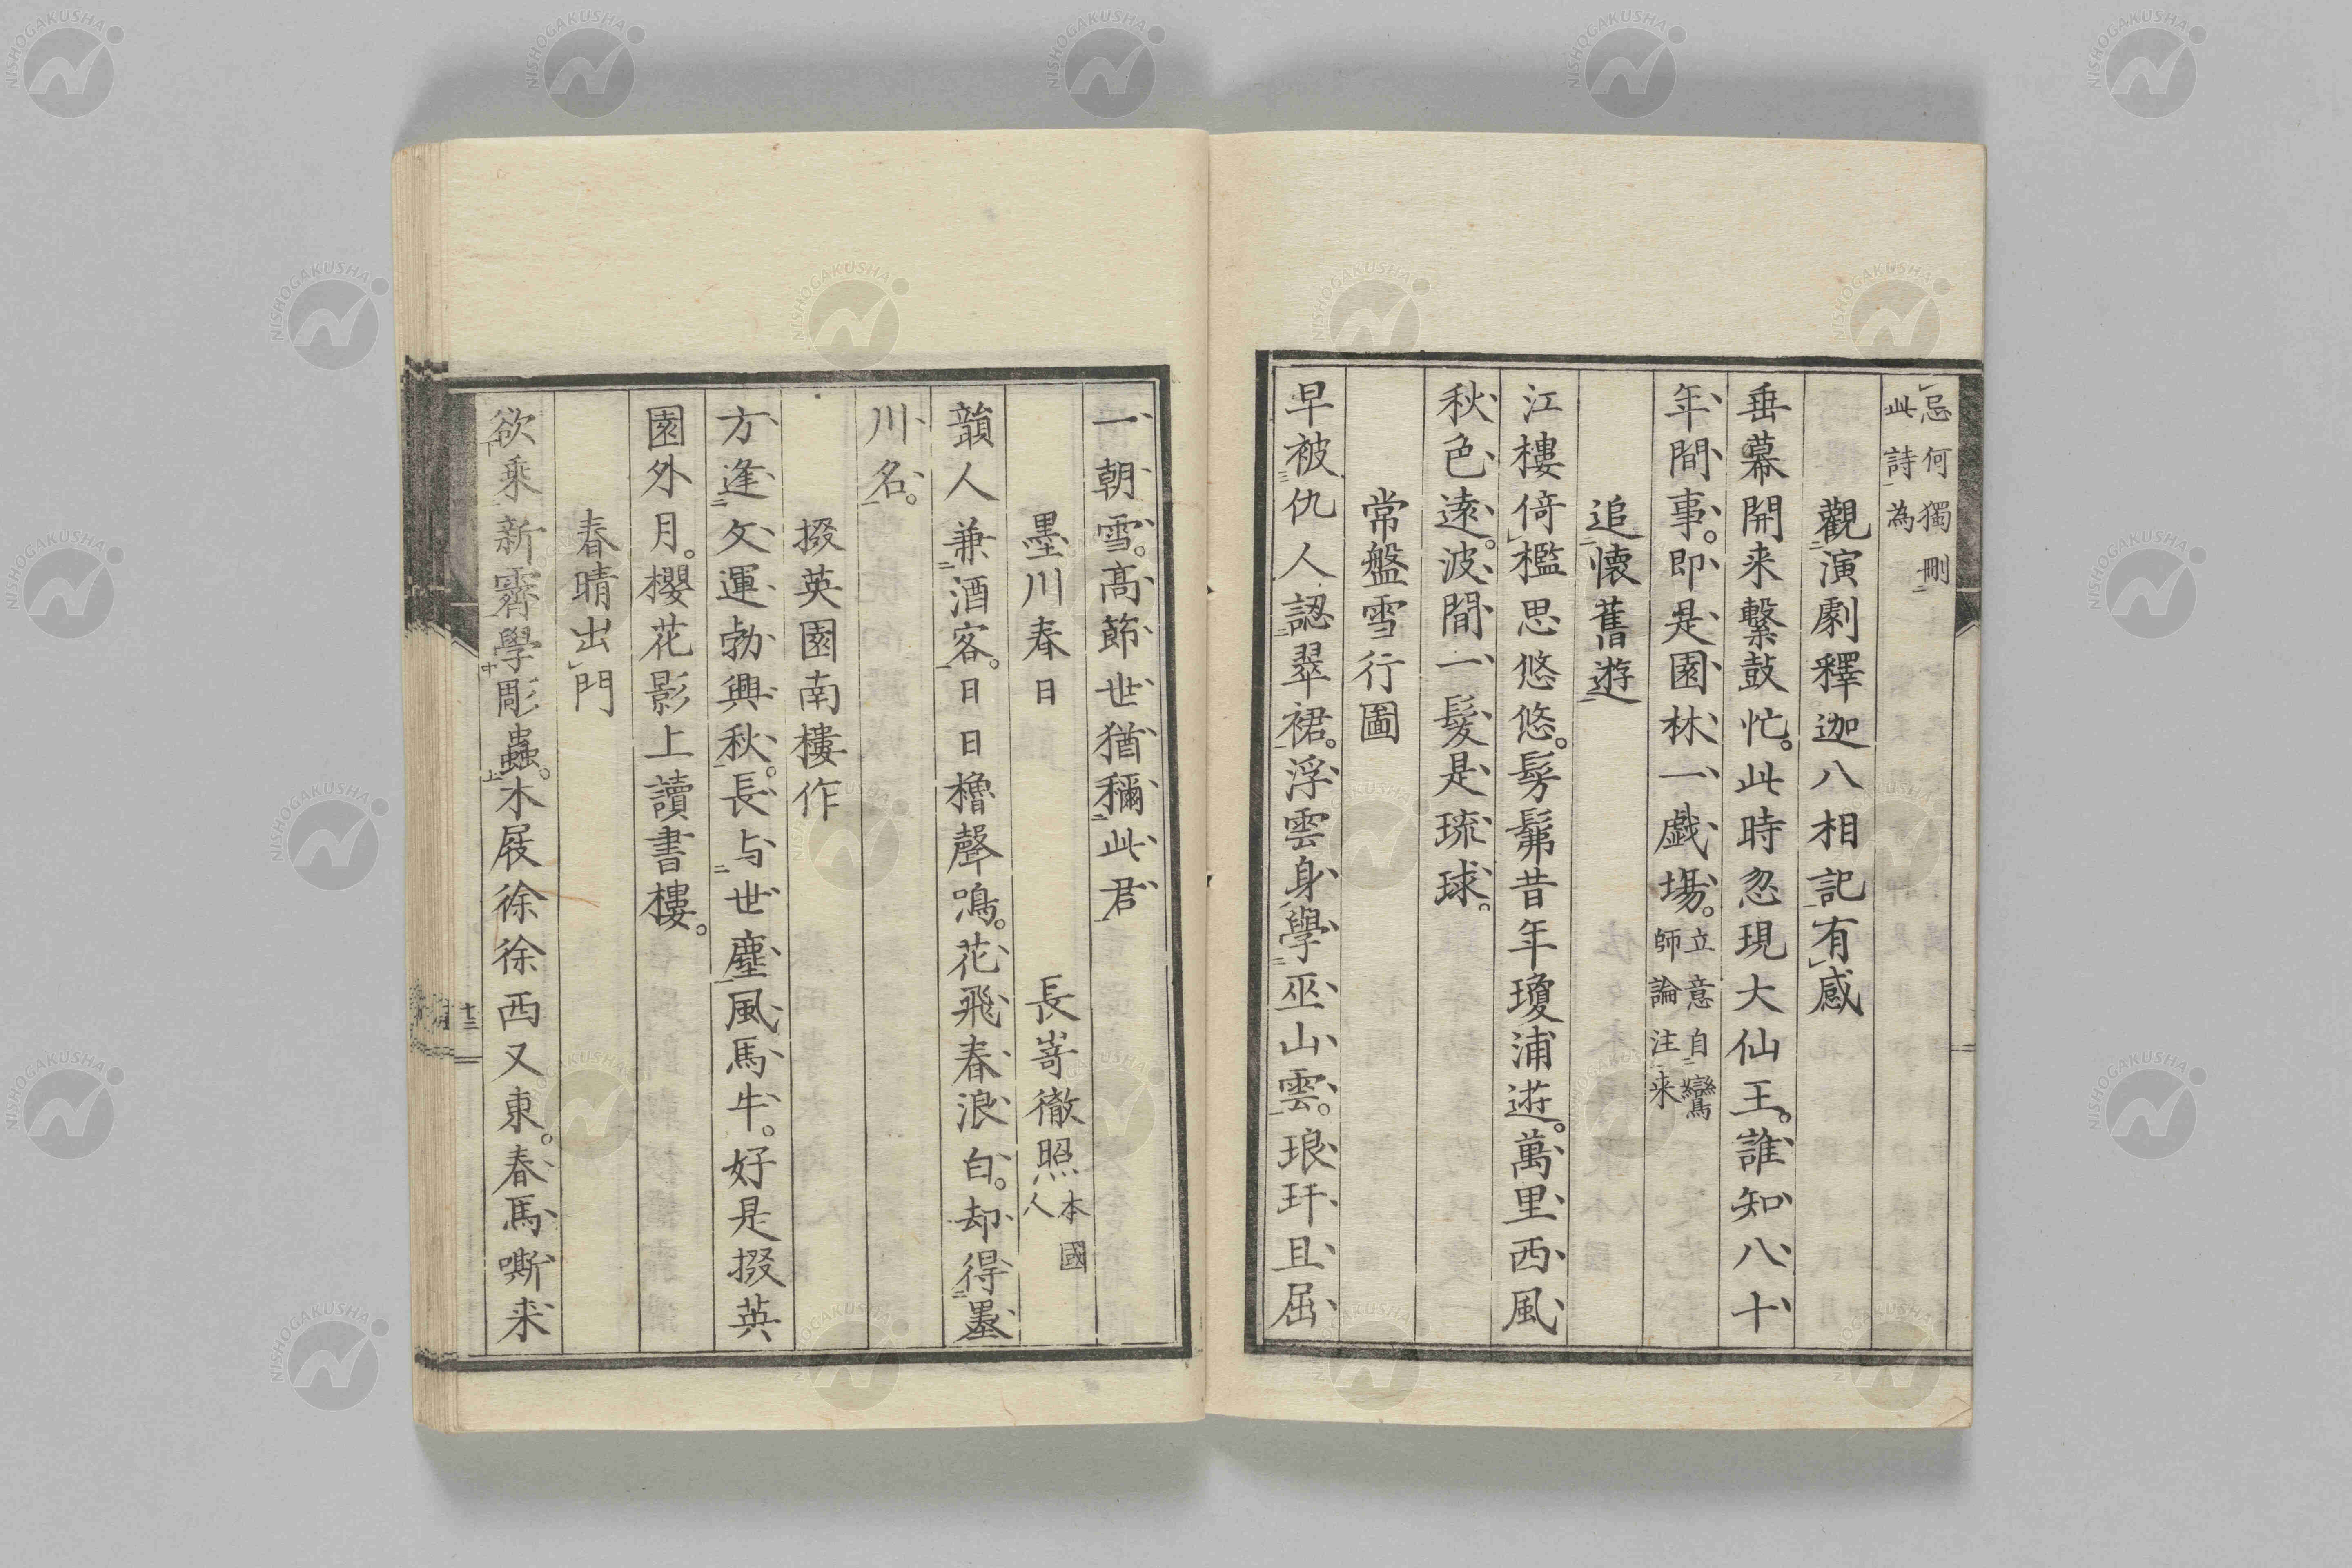 忌何獨刪
此詩為
觀演劇釋迦八相記有感
垂幕開来繫鼓忙。此時忽現大仙王。誰知八十
年間事。即是園林一戯場。立意自鸞
師論注来
追懷舊遊
江樓倚檻思悠悠。髣髴昔年瓊浦遊。萬里西風
秋色遠。波間一髮是琉球。
常盤雪行圖
早被仇人認翠裙。浮雲身學巫山雲。琅玕且屈
一朝雪。高節世猶稱此君
墨川春日 長嵜徹照本國
人
韻人兼酒客。日日櫓聲鳴。花飛春浪白。却得墨
川名。
掇英園南樓作
方逢文運勃興秋。長与世塵風馬牛。好是掇英
園外月。櫻花影上讀書樓。
春晴出門
欲乘新霽學彫蟲。木屐徐徐西又東。春馬嘶来
十三
NISHOGAKUSHA